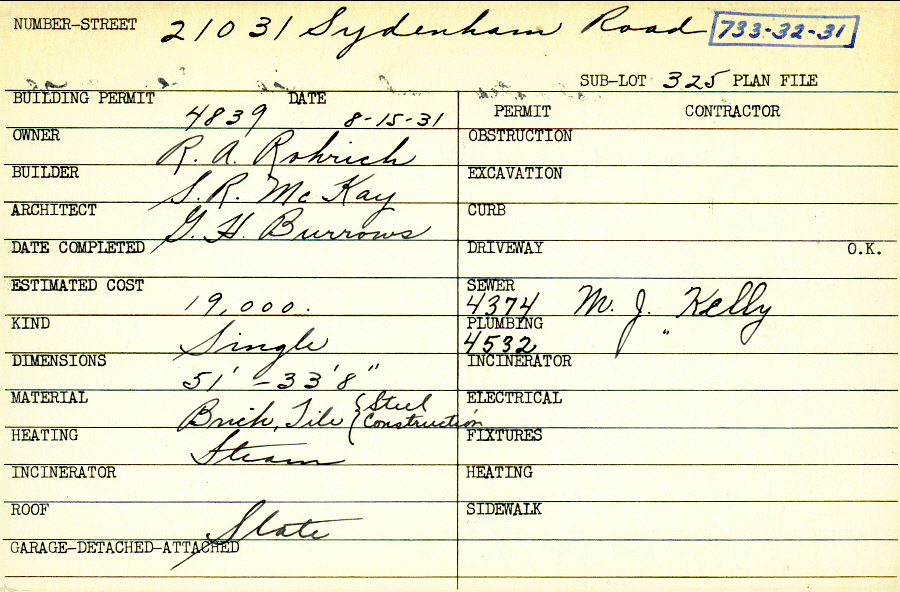 NUMBER-STREET 21031 Sydenham Road 733-32-31
SUB-LOT 325 PLAN FILE
BUILDING PERMIT 4839 DATE 8-15-31
OWNER R. A. Rohrich
BUILDER S. R. Mc Kay
ARCHITECT G. H. Burrows
DATE COMPLETED
ESTIMATED COST 19,000.
KIND Single
DIMENSIONS 51' - 33' 8"
MATERIAL Brick, Tile { Steel
Construction
HEATING Steam
INCINERATOR
ROOF Slate
GARAGE-DETACHED-ATTACHED
PERMIT CONTRACTOR
OBSTRUCTION
EXCAVATION
CURB
DRIVEWAY O.K.
SEWER
4374 M. J. Kelly
PLUMBING
4532 "
INCINERATOR
ELECTRICAL
FIXTURES
HEATING
SIDEWALK